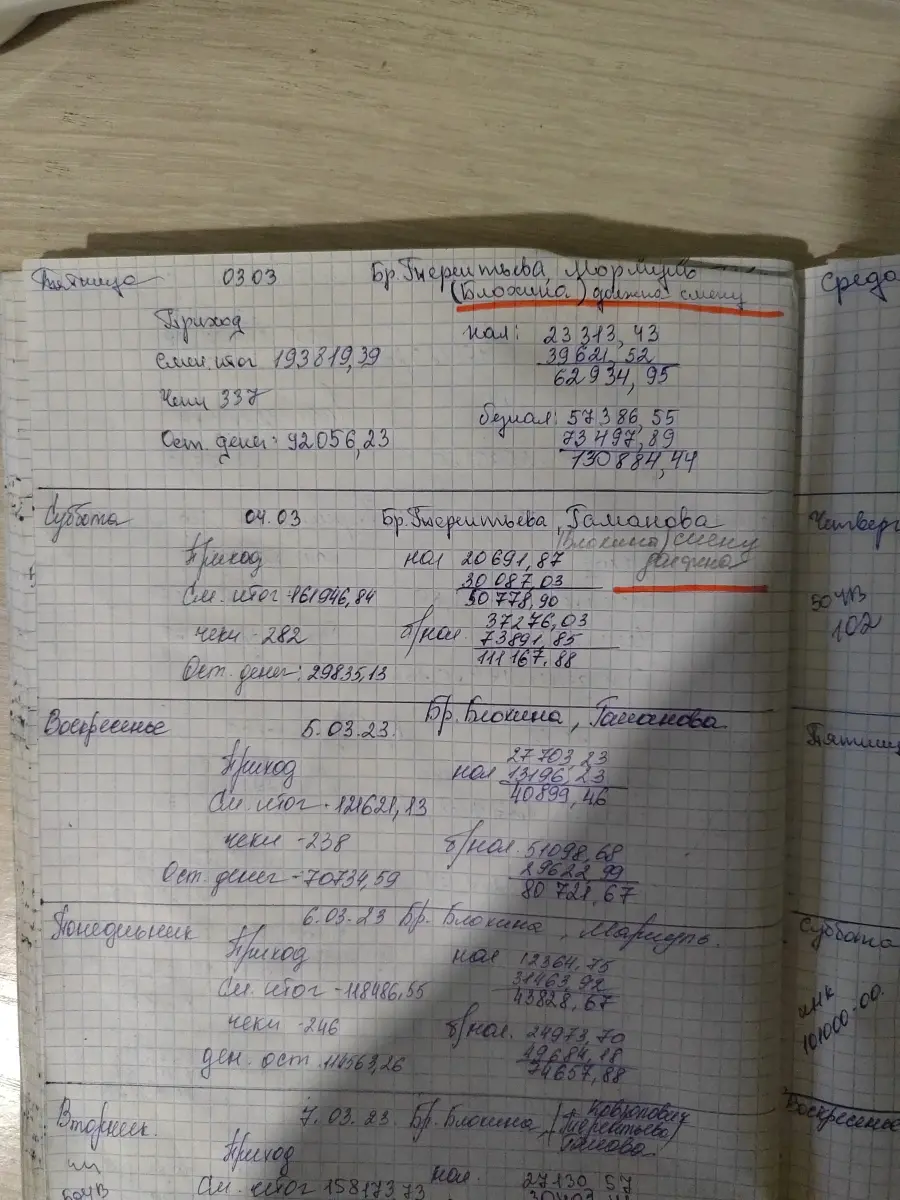 Пятница 03.03 Бр. Терентьева, Мормуль
(Блохина) должна смену
Приход нал: 23313,43
Смен. итог 193819,39 39621,52
62934,95
Чеки 337
безнал: 57386,55
Ост. денег: 92056,23 73497,89
130884,44
Суббота 04.03 Бр. Терентьева, Гаманова
(Блохина) смену
должна
Приход нал 20691,87
30087,03
См. итог -161946,84 50778,90
37276,03
чеки -282 б/нал. 73891,85
111167,88
Ост. денег: 29835,13
Воскресенье 5.03.23. Бр. Блохина, Гаманова.
27703,23
Приход нал 13196,23
40899,46
См. итог -121621,13
чеки -238 б/нал. 51098,68
29622,99
Ост. денег -70734,59 80721,67
Понедельник 6.03.23 Бр. Блохина,
Приход нал 12364,75
31463,92
См. итог -118486,55 43828,67
чеки -246 б/нал. 24973,70
49684,18
ден. ост. 114563,26 74657,88
Вторник. 7.03.23 Бр. Блохина /
Терентьева/
Приход
нал. 27130,57
См. итог 158173,73
Среда
Четверг
50ЧВ
102
Пятниц
Суббота
инк
101000-00.
Воскресенье